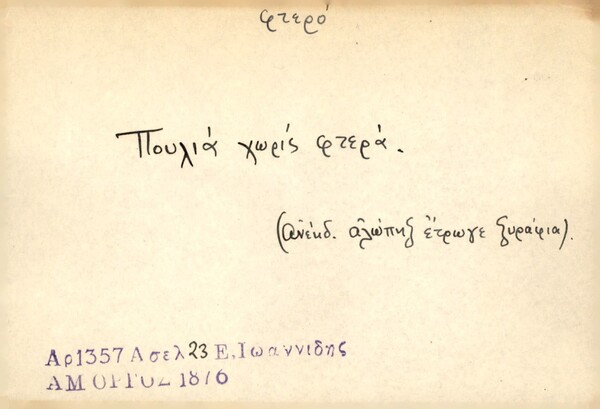 φτερό
Πουλιά χωρίς φτερά.
(ἀνέκδ. ἀλώπηξ ἔτρωγε ξυράφια).
Αρ1357 Α σελ 23 Ε, Ιωαννιδης
ΑΜΟΡΓΟΣ 1876